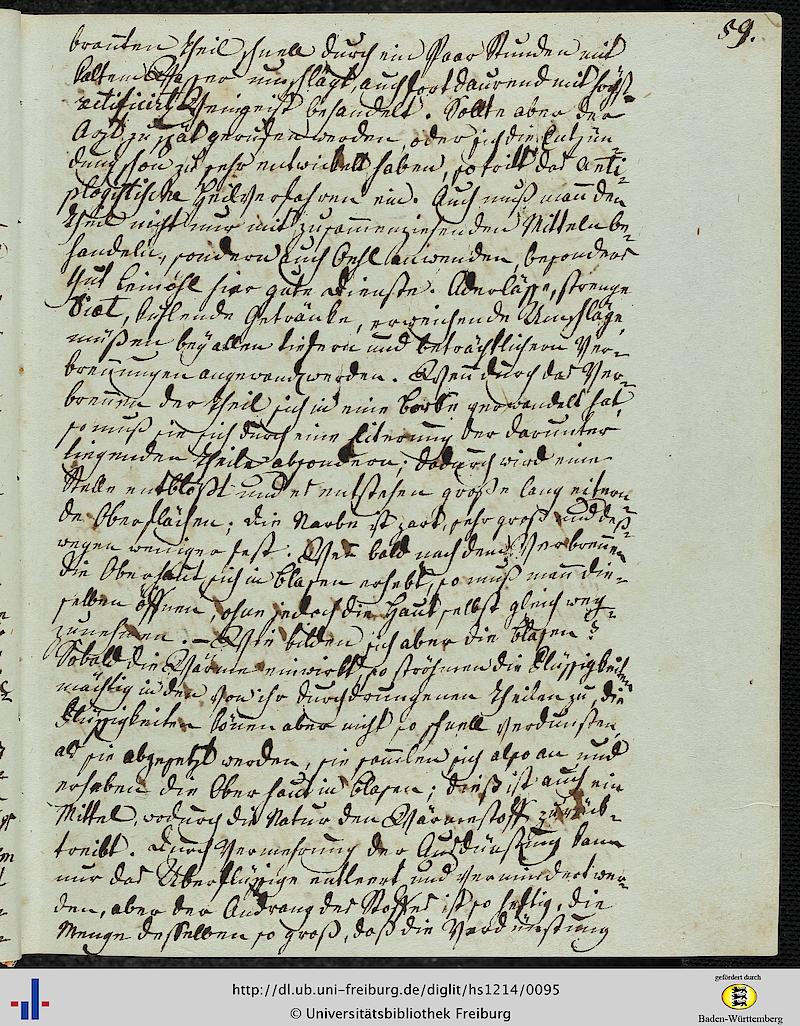 59.
brannten Theil schnell durch ein Paar Stunden mit
kaltem Wasser umschlägt, auch fortdaurend mit höchst
rectificirt. Weingeist behandelt. Sollte aber der
Arzt zu spät gerufen werden, oder sich die Entzün-
dung schon zu sehr entwickelt haben, so tritt das Anti-
plogistische Heilverfahren ein. Auch muß mann den
Theil nicht nur mit zusammenziehenden Mitteln be-
handeln, sondern auch Oehl anwenden, besonders
thut Leinöhl hier gute Dienste. Aderläße, strenge
Diæt, kühlende Getränke, erweichende Umschläge,
müßen bey allen tiefern und beträchtlichern Ver-
brennungen angewandt werden. Wenn durch das Ver-
brennen der Theil sich in eine Borke verwandelt hat,
so muß sie sich durch eine Eiterung der darunter
liegenden Theile absondern; dadurch wird eine
Stelle entblößt und es entstehen große lang eitern-
de Oberflächen; die Narbe ist zart, sehr groß und deß-
wegen weniger fest. Wenn bald nach dem Verbrennen
die Oberhaut sich in Blasen erhebt, so muß mann die-
selben öffnen, ohne jedoch die Haut selbst gleich weg-
zunehmen. – Wie bilden sich aber die Blasen?
Sobald die Wärme einwirkt, so ströhmen die Flüssigkeiten
mächtig in den von ihr durchdrungenen Theilen zu, die
Flüssigkeiten können aber nicht so schnell verdunsten,
als sie abgesetzt werden, sie sammlen sich also an und
erheben die Oberhaut in Blasen; dieß ist auch ein
Mittel, wodurch die Natur den Wärmestoff zurük-
treibt. Durch Vermehrung der Ausdünstung kann
nur das Überflüssige entleert und vermindert wer-
den, aber der Andrang des Stoffes ist so heftig, die
Menge desselben so groß, daß die Verdünstung
http://dl.ub.uni-freiburg.de/diglit/hs1214/0095
© Universitätsbibliothek Freiburg
gefördert durch
Baden-Württemberg